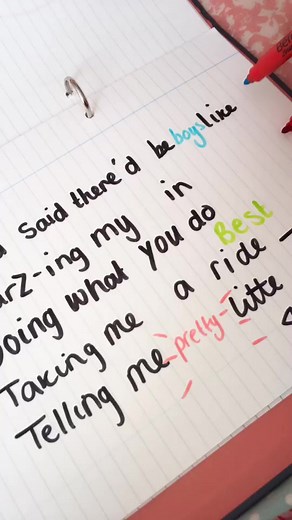 said there'd be boys like
-ing my in
Doing what You do BEST
Taking me a ride
Telling me pretty little